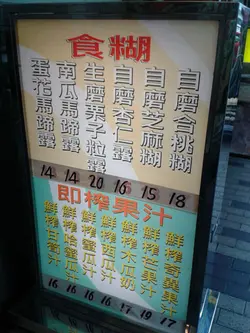 食糊
自磨合桃糊
自磨芝麻糊
自磨杏仁糊
生磨栗子粒露
南瓜馬蹄露
蛋花馬蹄露
14 14 20 16 15 18
即榨果汁
鮮榨奇異果汁
鮮榨芒果汁
鮮榨木瓜奶
鮮榨西瓜汁
鮮榨哈蜜瓜汁
鮮榨甘蔗汁
16 16 16 17 19 17